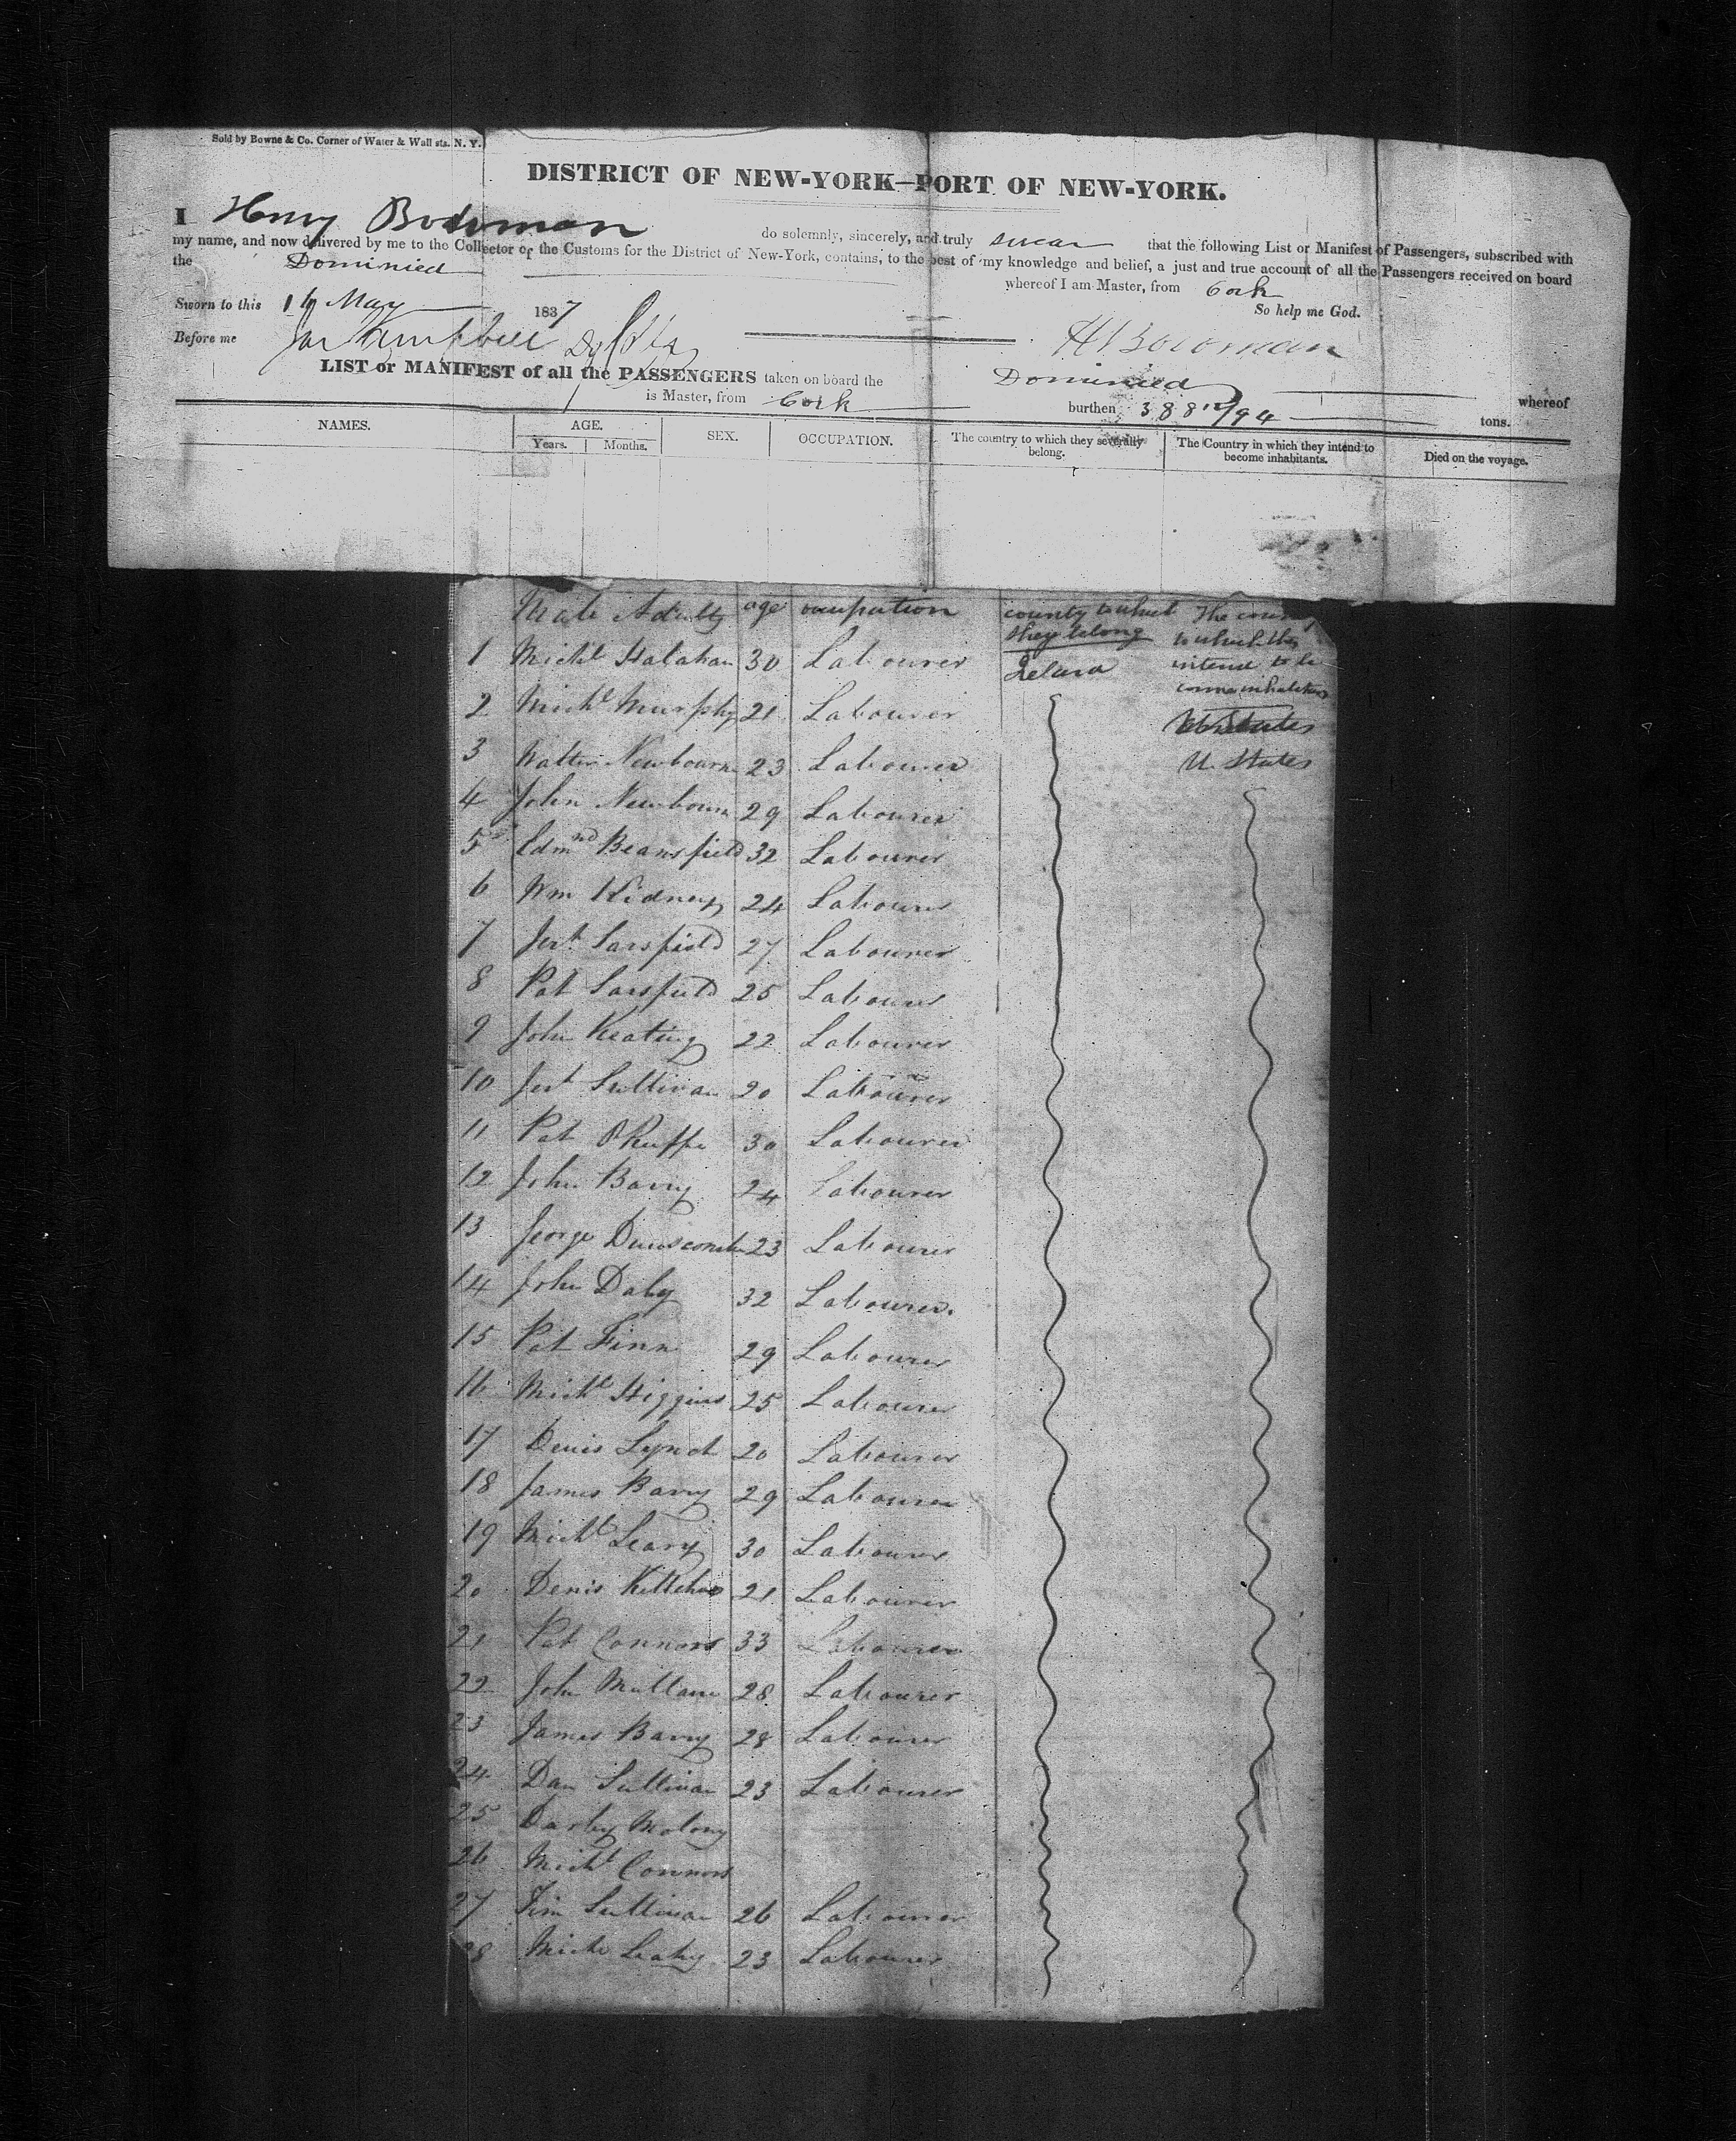 Sold by Bowne & Co. Corner of Water & Wall sts. N. Y.
DISTRICT OF NEW-YORK—PORT OF NEW-YORK.
I Henry Bowman do solemnly, sincerely, and truly swear that the following List or Manifest of Passengers, subscribed with
my name, and now delivered by me to the Collector of the Customs for the District of New-York, contains, to the best of my knowledge and belief, a just and true account of all the Passengers received on board
the Dominied whereof I am Master, from Cork
Sworn to this 16 May 1837 So help me God.
Before me Jas Campbell H Bowman
LIST or MANIFEST of all the PASSENGERS taken on board the Dominied whereof
is Master, from Cork burthen 388 12/94 tons.
NAMES. AGE. SEX. OCCUPATION. The country to which they severally belong. The Country in which they intend to become inhabitants. Died on the voyage.
Years. Months.
Male Adults age occupation county to which they belong The country to which they intend to become inhabitants
1 Michl Halahan 30 Labourer Ireland
2 Michl Murphy 21 Labourer U States
3 Walter Newbourn 23 Labourer U. States
4 John Newbourn 29 Labourer
5 Edmnd Beansfield 32 Labourer
6 Wm Kidney 24 Labourer
7 Jerh Sarsfield 27 Labourer
8 Pat Sarsfield 25 Labourer
9 John Keating 22 Labourer
10 Jerh Sullivan 20 Labourer
11 Pat OKeeffe 30 Labourer
12 John Barry 24 Labourer
13 George Dunscombe 23 Labourer
14 John Daly 32 Labourer.
15 Pat Finn 29 Labourer
16 Michl Higgins 25 Labourer
17 Denis Lynch 20 Labourer
18 James Barry 29 Labourer
19 Michl Leary 30 Labourer
20 Denis 21 Labourer
21 Pat Connors 33 Labourer
22 John Mullane 28 Labourer
23 James Barry 28 Labourer
24 Dan Sullivan 23 Labourer
25 Darby Molony
26 Michl Connors
27 Tim Sullivan 26 Labourer
28 Michl Leahy 23 Labourer